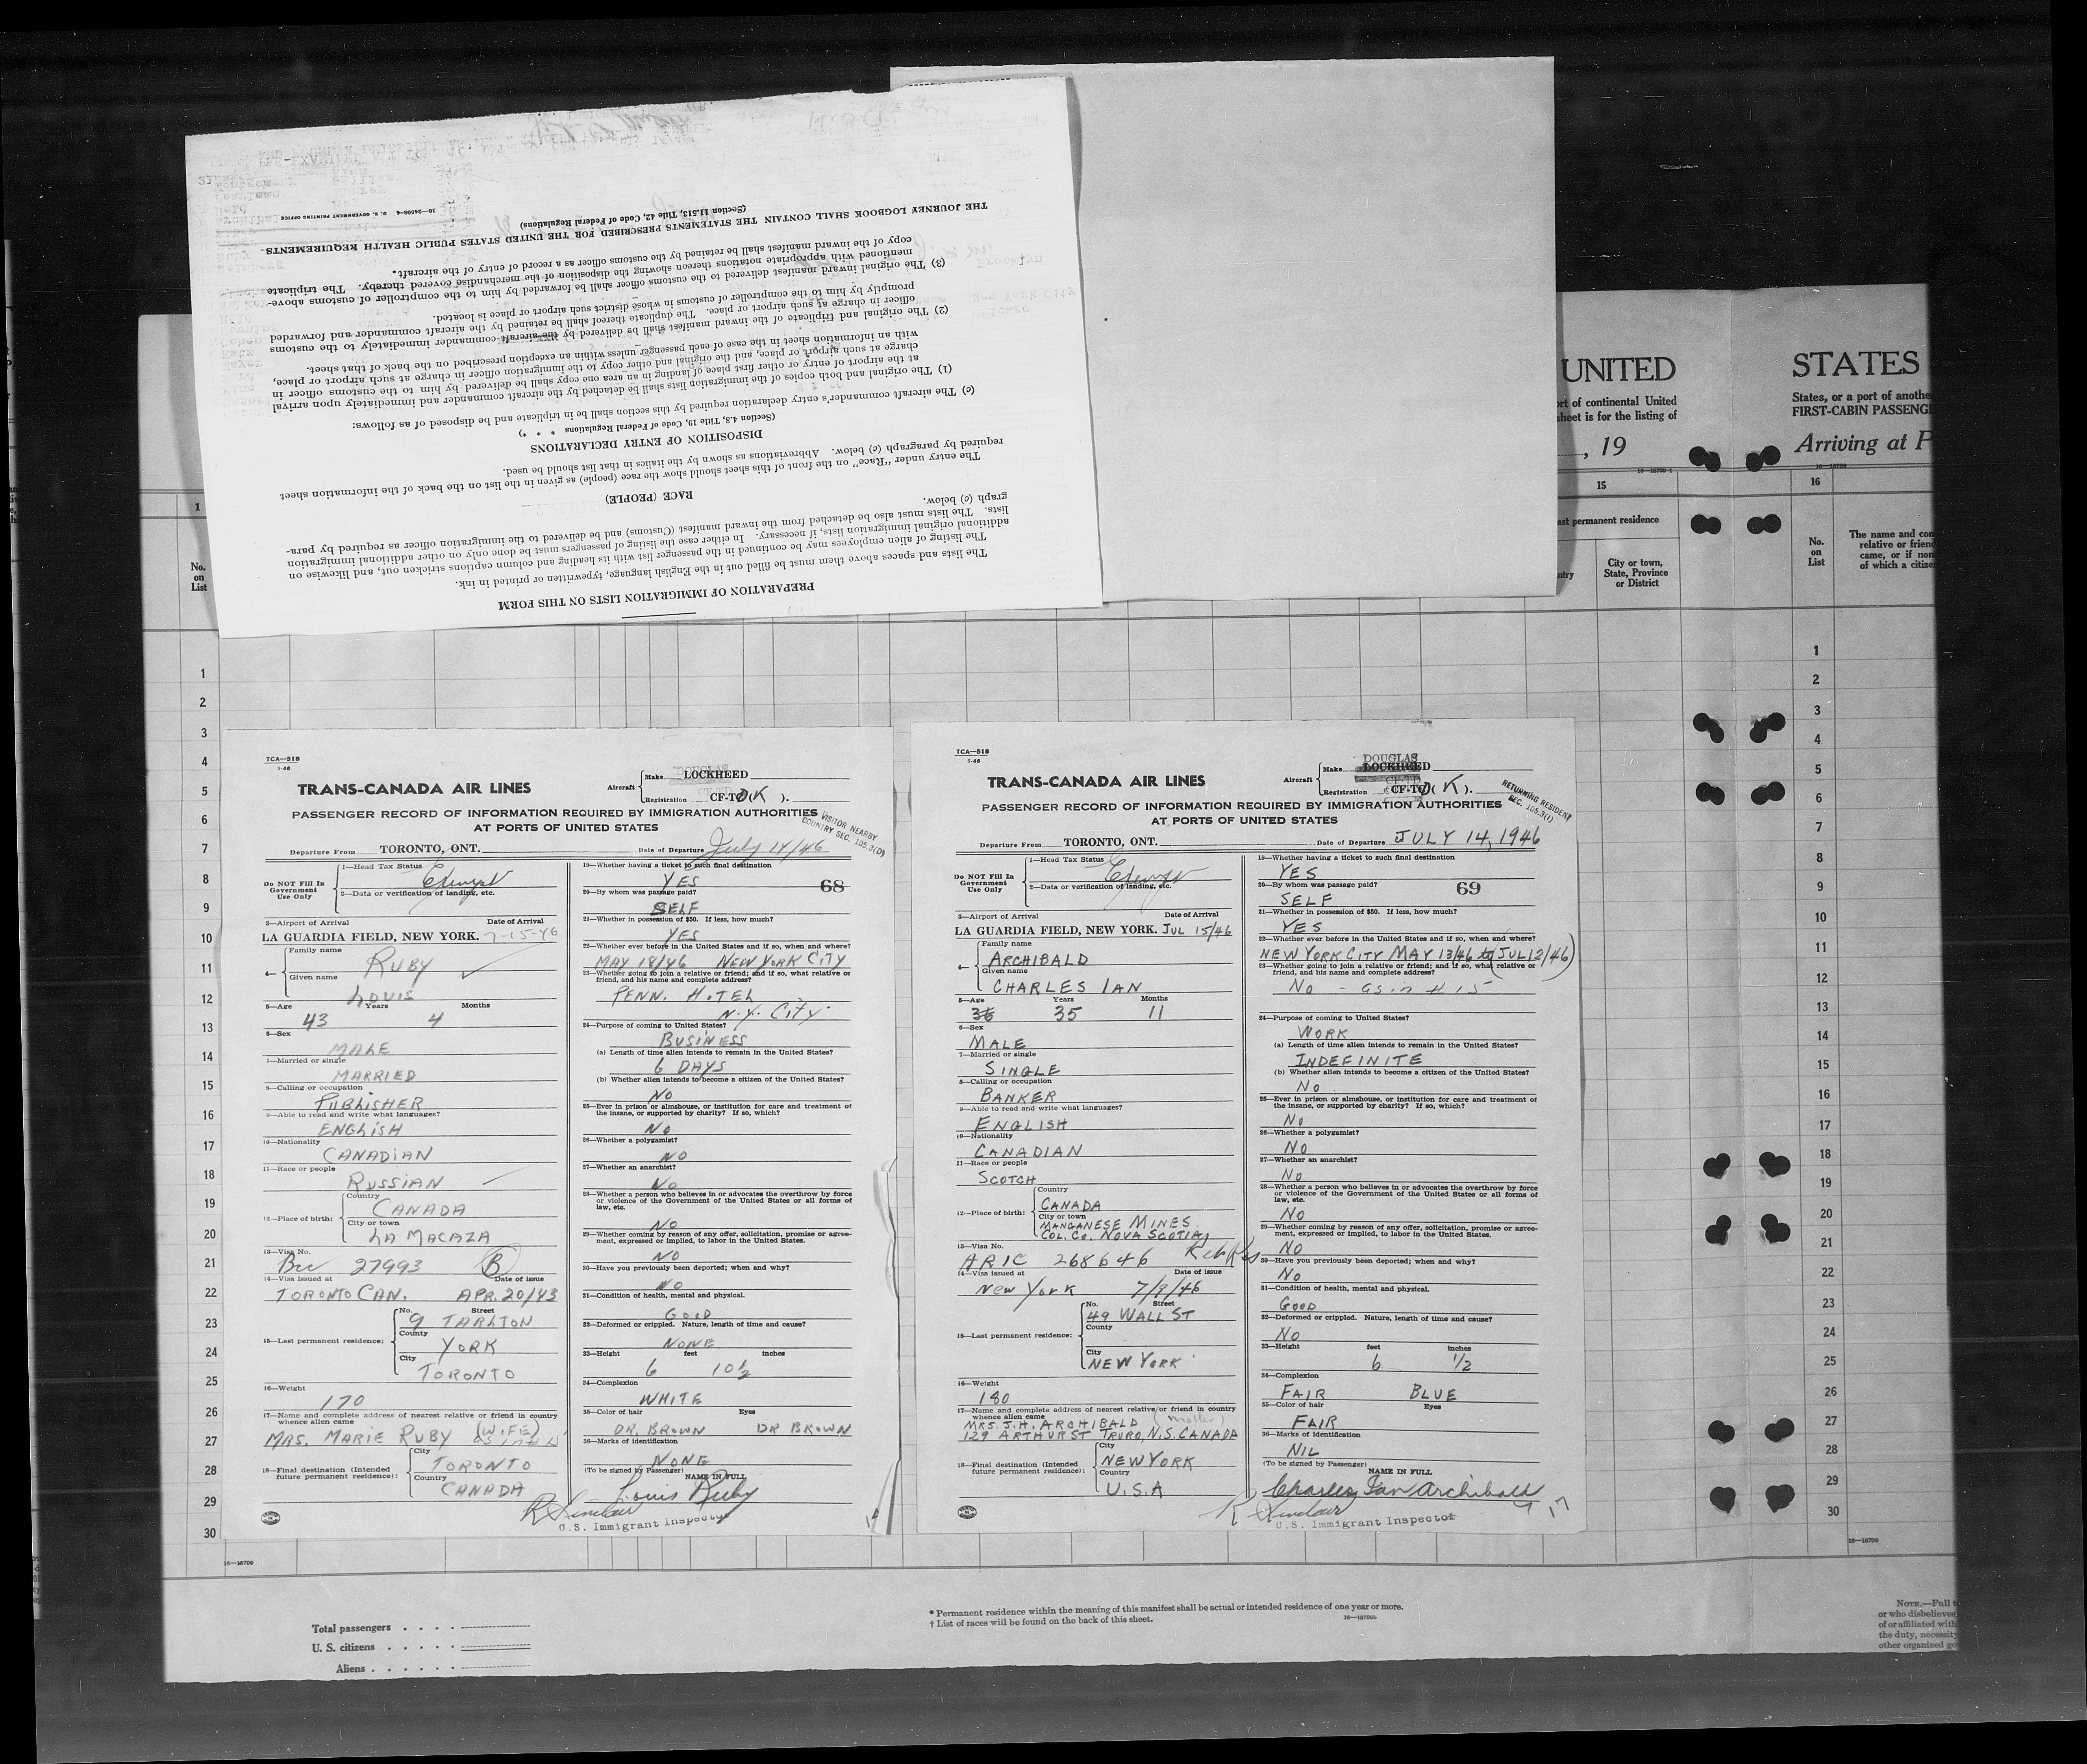 PREPARATION OF IMMIGRATION LISTS ON THIS FORM
The lists and spaces above them must be filled out in the English language, typewritten or printed in ink.
The listing of alien employees may be continued in the passenger list with its heading and column captions stricken out, and likewise on
additional original immigration lists, if necessary. In either case the listing of passengers must be done only on other additional immigration
lists. The lists must also be detached from the inward manifest (Customs) and be delivered to the immigration officer as required by para-
graph (c) below.
RACE (PEOPLE)
The entry under "Race" on the front of this sheet should show the race (people) as given in the list on the back of the information sheet
required by paragraph (c) below. Abbreviations as shown by the italics in that list should be used.
DISPOSITION OF ENTRY DECLARATIONS
(Section 4.3, Title 19, Code of Federal Regulations * * *)
(c) The aircraft commander's entry declaration required by this section shall be in triplicate and be disposed of as follows:
(1) The original and both copies of the immigration lists shall be detached by the aircraft commander and immediately upon arrival
at the airport of entry or other first place of landing in an area one copy shall be delivered by him to the customs officer in
charge at such airport or place, and the original and other copy to the immigration officer in charge at such airport or place,
with an information sheet in the case of each passenger unless within an exception prescribed on the back of that sheet.
(2) The original and triplicate of the inward manifest shall be delivered by the aircraft commander immediately to the customs
officer in charge at such airport or place. The duplicate thereof shall be retained by the aircraft commander and forwarded
promptly by him to the comptroller of customs in whose district such airport or place is located.
(3) The original inward manifest delivered to the customs officer shall be forwarded by him to the comptroller of customs above-
mentioned with appropriate notations thereon showing the disposition of the merchandise covered thereby. The triplicate
copy of the inward manifest shall be retained by the customs officer as a record of entry of the aircraft.
THE JOURNEY LOGBOOK SHALL CONTAIN THE STATEMENTS PRESCRIBED FOR THE UNITED STATES PUBLIC HEALTH REQUIREMENTS
(Section 11.513, Title 42, Code of Federal Regulations)
16—24098-4 U. S. GOVERNMENT PRINTING OFFICE
UNITED
of continental United
sheet is for the listing of
, 19
16—18709-1
15
permanent residence
City or town,
State, Province
or District
STATES
States, or a port of
FIRST-CABIN
Arriving at
16—18709
16
No.
on
List
The name and
relative or
came, or if
of which a
1
No.
on
List
1
2
3
4
5
6
7
8
9
10
11
12
13
14
15
16
17
18
19
20
21
22
23
24
25
26
27
28
29
30
TCA—518
5-46
TRANS-CANADA AIR LINES
Aircraft
Make LOCKHEED
DOUGLAS
Registration CF-T (K).
PASSENGER RECORD OF INFORMATION REQUIRED BY IMMIGRATION AUTHORITIES
AT PORTS OF UNITED STATES
VISITOR NEARBY
COUNTRY SEC. 105.3(D)
Departure From TORONTO, ONT. Date of Departure July 14/46
Do NOT Fill In
Government
Use Only
1—Head Tax Status
Exempt
2—Data or verification of landing, etc.
3—Airport of Arrival Date of Arrival
LA GUARDIA FIELD, NEW YORK. 7-15-46
4—
Family name
RUBY
Given name
LOUIS
5—Age Years Months
43 4
6—Sex
MALE
7—Married or single
MARRIED
8—Calling or occupation
PUBLISHER
9—Able to read and write what languages?
ENGLISH
10—Nationality
CANADIAN
11—Race or people
RUSSIAN
12—Place of birth:
Country
CANADA
City or town
LA MACAZA
13—Visa No.
27993 B
14—Visa issued at Date of issue
TORONTO CAN. APR. 20/43
15—Last permanent residence:
No. Street
9 TARLTON
County
YORK
City
TORONTO
16—Weight
170
17—Name and complete address of nearest relative or friend in country
whence alien came
MRS. MARIE RUBY (WIFE)
18—Final destination (Intended
future permanent residence):
City
TORONTO
Country
CANADA
19—Whether having a ticket to such final destination
YES
68
20—By whom was passage paid?
SELF
21—Whether in possession of $50. If less, how much?
YES
22—Whether ever before in the United States and if so, when and where?
MAY 18/46 NEW YORK CITY
23—Whether going to join a relative or friend; and if so, what relative or
friend, and his name and complete address?
PENN. HOTEL
N.Y. CITY
24—Purpose of coming to United States?
BUSINESS
(a) Length of time alien intends to remain in the United States?
6 DAYS
(b) Whether alien intends to become a citizen of the United States?
NO
25—Ever in prison or almshouse, or institution for care and treatment of
the insane, or supported by charity? If so, which?
NO
26—Whether a polygamist?
NO
27—Whether an anarchist?
NO
28—Whether a person who believes in or advocates the overthrow by force
or violence of the Government of the United States or all forms of
law, etc.
NO
29—Whether coming by reason of any offer, solicitation, promise or agree-
ment, expressed or implied, to labor in the United States.
NO
30—Have you previously been deported; when and why?
NO
31—Condition of health, mental and physical.
GOOD
32—Deformed or crippled. Nature, length of time and cause?
NONE
33—Height feet inches
6 10½
34—Complexion
WHITE
35—Color of hair Eyes
DR. BROWN DR BROWN
36—Marks of identification
NONE
(To be signed by Passenger) NAME IN FULL
Louis Ruby
R Sinclair
U.S. Immigrant Inspector
TCA—518
5-46
TRANS-CANADA AIR LINES
Aircraft
DOUGLAS
Make LOCKHEED
Registration CF-T (K).
RETURNING RESIDENT
SEC. 105.3(1)
PASSENGER RECORD OF INFORMATION REQUIRED BY IMMIGRATION AUTHORITIES
AT PORTS OF UNITED STATES
Departure From TORONTO, ONT. Date of Departure JULY 14, 1946
Do NOT Fill In
Government
Use Only
1—Head Tax Status
Exempt
2—Data or verification of landing, etc.
3—Airport of Arrival Date of Arrival
LA GUARDIA FIELD, NEW YORK. JUL 15/46
4—
Family name
ARCHIBALD
Given name
CHARLES IAN
5—Age Years Months
36 35 11
6—Sex
MALE
7—Married or single
SINGLE
8—Calling or occupation
BANKER
9—Able to read and write what languages?
ENGLISH
10—Nationality
CANADIAN
11—Race or people
SCOTCH
12—Place of birth:
Country
CANADA
City or town
MANGANESE MINES
COL. CO. NOVA SCOTIA
13—Visa No.
ARIC 268646
14—Visa issued at Date of issue
New York 7/9/46
15—Last permanent residence:
No. Street
49 WALL ST
County
City
NEW YORK
16—Weight
180
17—Name and complete address of nearest relative or friend in country
whence alien came
MRS. J.H. ARCHIBALD (mother)
129 ARTHUR ST TRURO, N.S. CANADA
18—Final destination (Intended
future permanent residence):
City
NEW YORK
Country
U.S.A
19—Whether having a ticket to such final destination
YES
69
20—By whom was passage paid?
SELF
21—Whether in possession of $50. If less, how much?
YES
22—Whether ever before in the United States and if so, when and where?
NEW YORK CITY MAY 13/46 to (JUL 12/46)
23—Whether going to join a relative or friend; and if so, what relative or
friend, and his name and complete address?
NO - as in # 15
24—Purpose of coming to United States?
WORK
(a) Length of time alien intends to remain in the United States?
INDEFINITE
(b) Whether alien intends to become a citizen of the United States?
NO
25—Ever in prison or almshouse, or institution for care and treatment of
the insane, or supported by charity? If so, which?
NO
26—Whether a polygamist?
NO
27—Whether an anarchist?
NO
28—Whether a person who believes in or advocates the overthrow by force
or violence of the Government of the United States or all forms of
law, etc.
NO
29—Whether coming by reason of any offer, solicitation, promise or agree-
ment, expressed or implied, to labor in the United States.
NO
30—Have you previously been deported; when and why?
NO
31—Condition of health, mental and physical.
GOOD
32—Deformed or crippled. Nature, length of time and cause?
NO
33—Height feet inches
6 1/2
34—Complexion
FAIR BLUE
35—Color of hair Eyes
FAIR
36—Marks of identification
NIL
(To be signed by Passenger) NAME IN FULL
Charles Ian Archibald
R Sinclair
U.S. Immigrant Inspector
1
2
3
4
5
6
7
8
9
10
11
12
13
14
15
16
17
18
19
20
21
22
23
24
25
26
27
28
29
30
16—18709
16—18709
Total passengers
U. S. citizens
Aliens
* Permanent residence within the meaning of this manifest shall be actual or intended residence of one year or more.
† List of races will be found on the back of this sheet. 16—18709b
NOTE.—Full
or who disbelieves
of or affiliated with
the duty, necessity
other organized